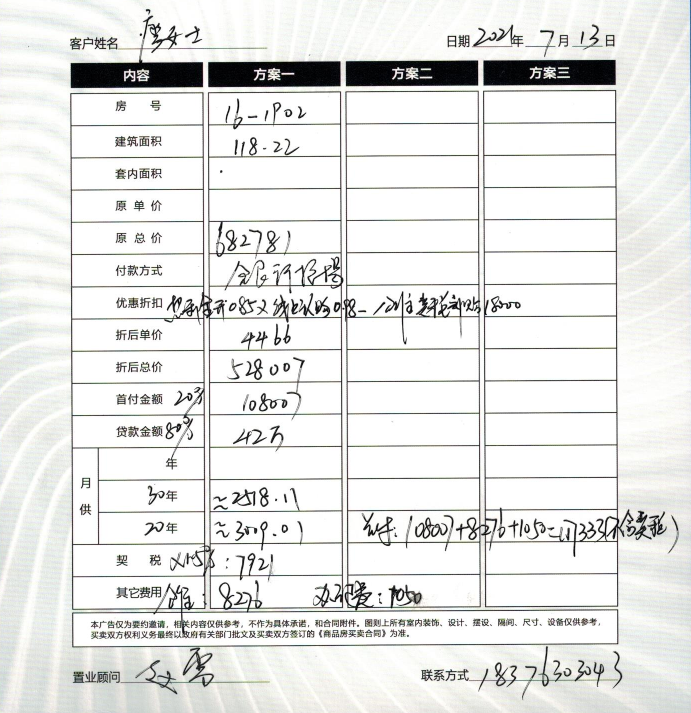 客户姓名 女士 日期 2021年 7月 13日
内容 方案一 方案二 方案三
房号 16-1902
建筑面积 118.22
套内面积
原单价
原总价 682781
付款方式
优惠折扣 0.85 0.98 18000
折后单价 4466
折后总价 528007
首付金额 20% 108007
贷款金额 80% 42万
月供
年
30年 ≈2518.11
20年 ≈3009.01 108007+8276+1050=117333(不含契税)
契税 ×1.5%:7921
其它费用 :8276 办证费:1050
本广告仅为要约邀请，相关内容仅供参考，不作为具体承诺，和合同附件。图则上所有室内装饰、设计、摆设、隔间、尺寸、设备仅供参考，
买卖双方权利义务最终以政府有关部门批文及买卖双方签订的《商品房买卖合同》为准。
置业顾问 雪 联系方式 18376303043